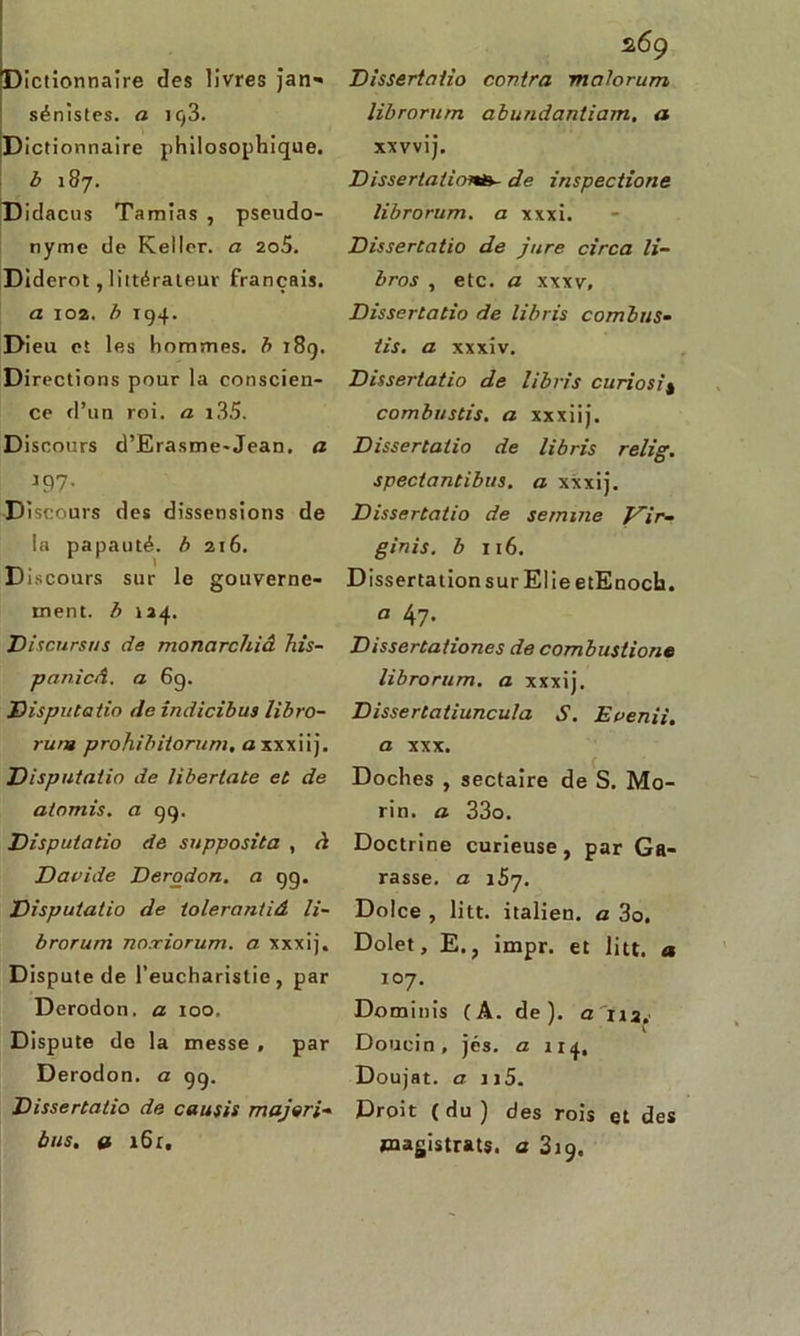 269
Dictionnaire des livres jan-
sénistes. a 193.
Dictionnaire philosophique.
b 187.
Didacus Tamias , pseudo-
nyme de Keller. a 205.
Diderot, littérateur français.
a 102. b 194.
Dieu et les hommes. b 189.
Directions pour la conscien-
ce d'un roi. a 135.
Discours d'Erasme-Jean. a
197.
Discours des dissensions de
la papauté. b 216.
Discours sur le gouverne-
ment. b 124.
Discursus de monarchiâ his-
panicâ. a 69.
Disputatio de indicibus libro-
rum prohibitorum. a xxxiij.
Disputatio de libertate et de
atomis. a 99.
Disputatio de supposita , à
Davide Derodon. a 99.
Disputatio de tolerantiâ li-
brorum noxiorum. a xxxij.
Dispute de l'eucharistie, par
Derodon. a 100.
Dispute de la messe , par
Derodon. a 99.
Dissertatio de causis majori-
bus. a 161.
Dissertatio contra malorum
librorum abundantiam. a
xxvvij.
Dissertationes de inspectione
librorum. a xxxi.
Dissertatio de jure circa li-
bros , etc. a xxxv.
Dissertatio de libris combus-
tis. a xxxiv.
Dissertatio de libris curiosis
combustis. a xxxiij.
Dissertatio de libris relig.
spectantibus. a xxxij.
Dissertatio de semine Vir-
ginis. b 116.
Dissertation sur Elie et Enoch.
a 47.
Dissertationes de combustione
librorum. a xxxij.
Dissertatiuncula S. Evenii.
a xxx.
Doches , sectaire de S. Mo-
rin. a 330.
Doctrine curieuse, par Ga-
rasse. a 157.
Dolce , litt. italien. a 30.
Dolet, E., impr. et litt. a
107.
Dominis (A. de). a 112.
Doucin, jés. a 114.
Doujat. a 115.
Droit (du) des rois et des
magistrats. a 319.